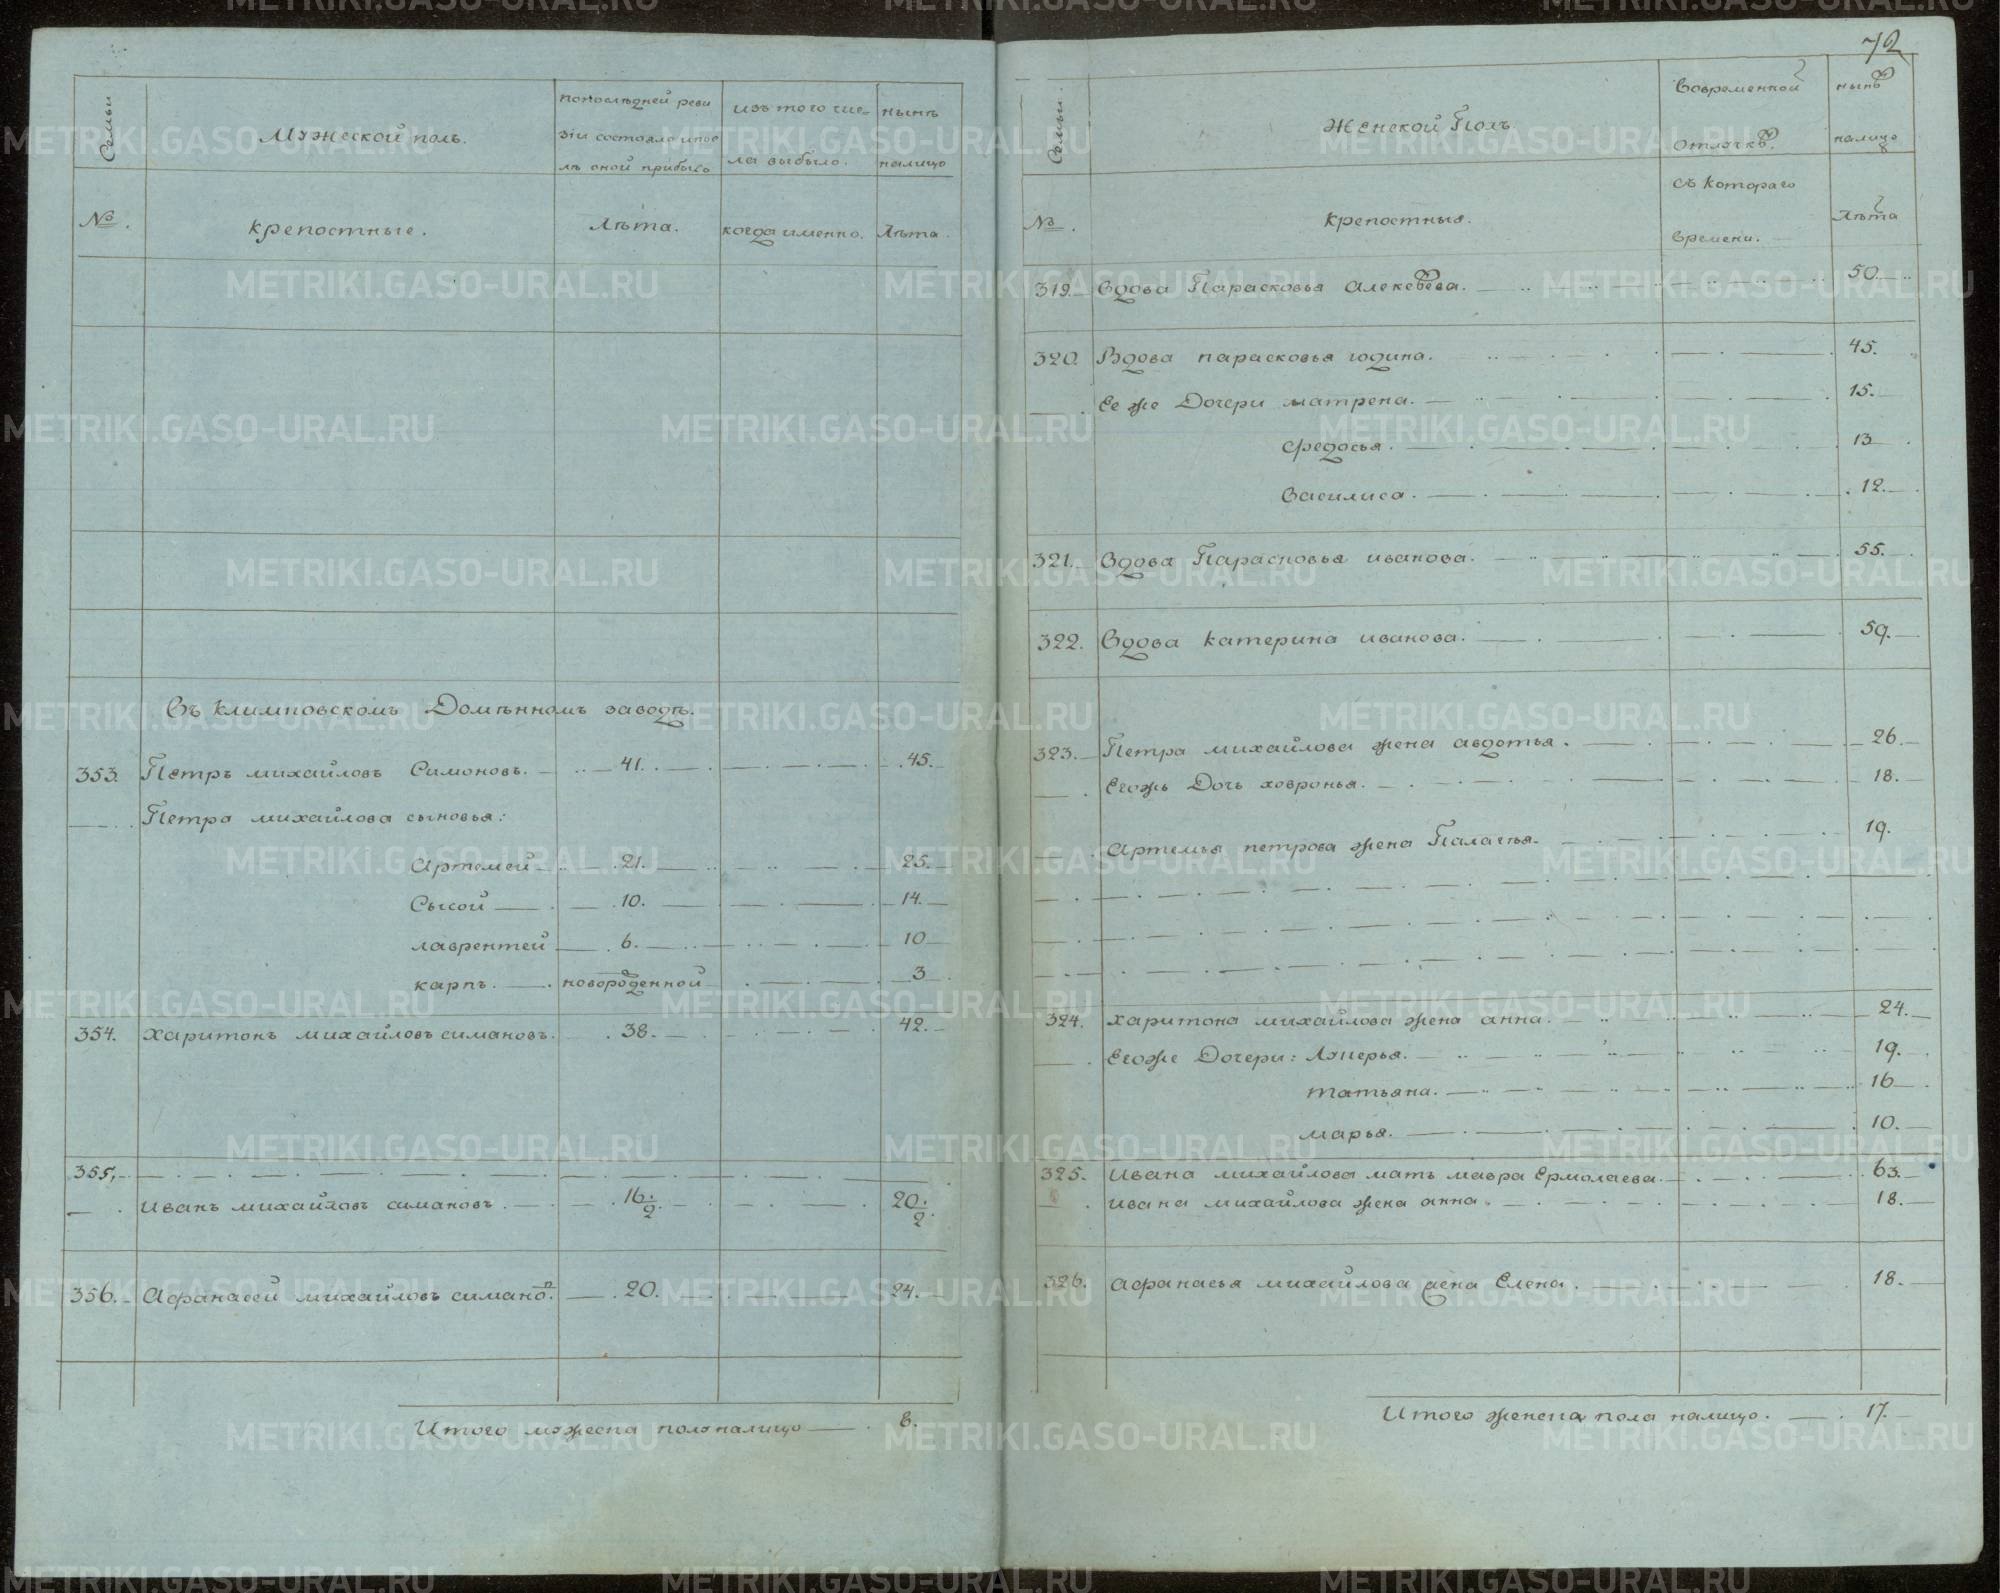 72
Семьи
Мужеской полъ.
попослѣдней реви
зіи состояло ипос
лѣ оной прибыло
изъ того чис
ла выбыло.
нынѣ
налицо
№.
крепостные.
Лѣта.
когда именно.
Лѣта.
Въ климковскомъ Доменномъ заводѣ.
353. Петръ михайловъ Симоновъ. 41. 45.
Петра михайлова сыновья:
Артемей 21. 25.
Сысой 10. 14.
лаврентей 6. 10
карпъ. новорожденной 3
354. Харитонъ михайловъ симановъ. 38. 42.
355.
Иванъ михайловъ симановъ. 16½ 20½
356. Афанасей михайловъ симано. 20. 24.
Итого мужеска полу налицо 8.
Семьи.
Женской Полъ.
Вовременной
отлучкѣ.
нынѣ
налицо
№.
крепостныя.
съ котораго
времени.
Лѣта
319. Вдова Парасковья алексѣева. 50.
320. Вдова парасковья година. 45.
Ее же Дочери матрена. 15.
Федосья. 13
Василиса. 12.
321. Вдова Парасковья иванова. 55.
322. Вдова катерина иванова. 59.
323. Петра михайлова жена авдотья. 26.
Егожъ Дочь ховронья. 18.
Артемья петрова жена Палагья. 19.
324. харитона михайлова жена анна. 24.
Егоже Дочери: Лукерья. 19.
татьяна. 16
марья. 10.
325. Ивана михайлова мать мавра Ермолаева. 63.
ивана михайлова жена анна. 18.
326. афанасья михайлова жена Елена. 18.
Итого женска пола налицо. 17.
METRIKI.GASO-URAL.RU